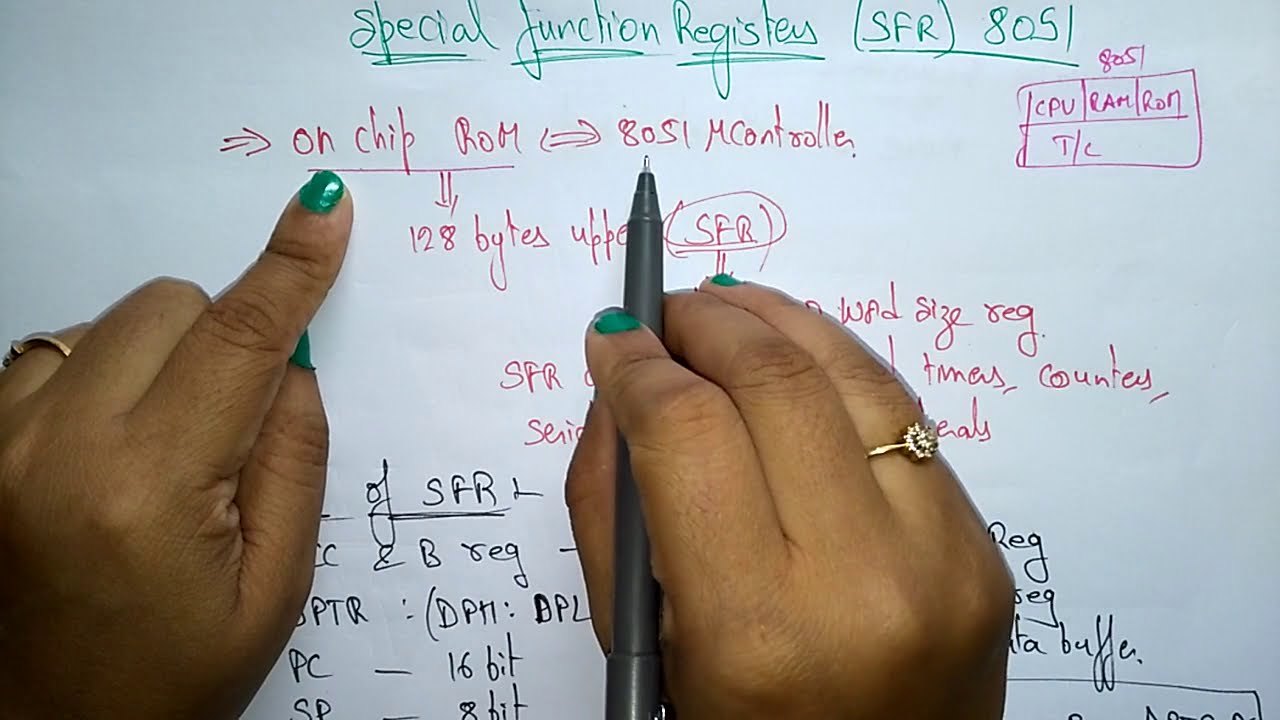 Special function Registers (SFR) 8051
8051
CPU RAM ROM
T/C
⇒ on chip ROM ⇔ 8051 MController.
128 bytes uppe (SFR)
word size reg.
SFR timers, counters,
of SFR
& B reg - Reg
DPTR : (DPH: DPL reg
PC - 16 bit buffer.
SP - 8 bit